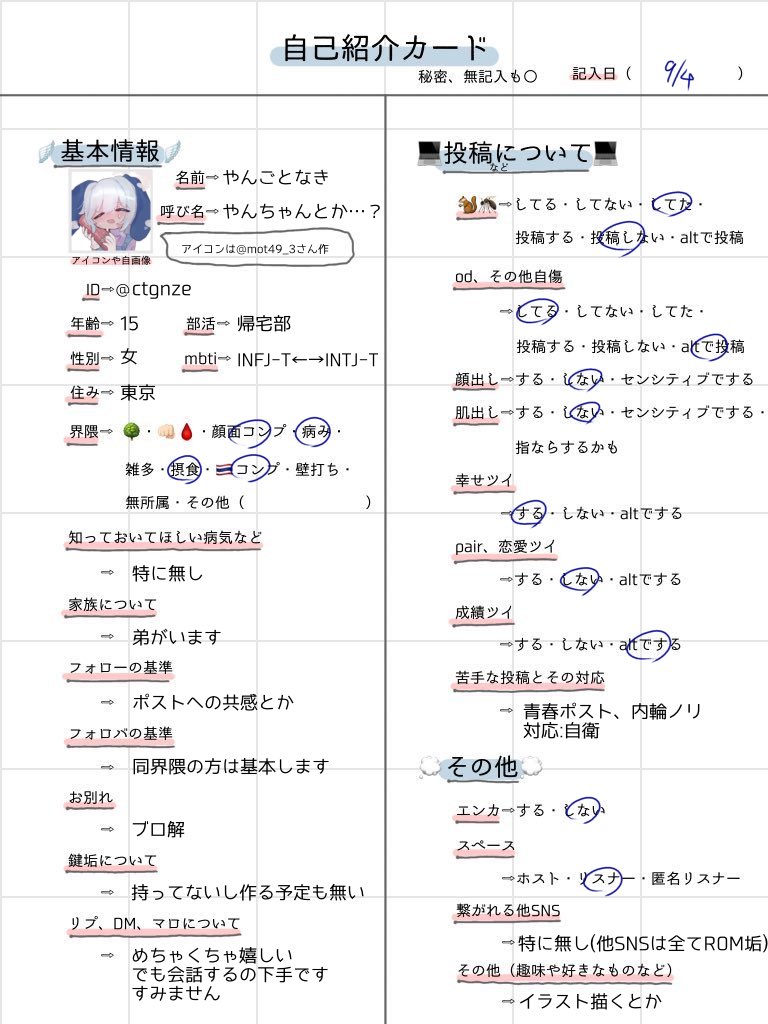 自己紹介カード
秘密、無記入も〇
記入日（ 9/4 ）
基本情報
名前⇨やんごとなき
呼び名⇨やんちゃんとか…？
アイコンは@mot49_3さん作
アイコンや自画像
ID⇨@ctgnze
年齢⇨ 15 部活⇨ 帰宅部
性別⇨ 女 mbti⇨ INFJ-T←→INTJ-T
住み⇨ 東京
界隈⇨ 🌳・👊🏻🩸・顔面コンプ・病み・
雑多・摂食・🇹🇭コンプ・壁打ち・
無所属・その他（ ）
知っておいてほしい病気など
⇨ 特に無し
家族について
⇨ 弟がいます
フォローの基準
⇨ ポストへの共感とか
フォロバの基準
⇨ 同界隈の方は基本します
お別れ
⇨ ブロ解
鍵垢について
⇨ 持ってないし作る予定も無い
リプ、DM、マロについて
⇨ めちゃくちゃ嬉しい
でも会話するの下手です
すみません
💻投稿について💻
など
🐿️🦟⇨してる・してない・してた・
投稿する・投稿しない・altで投稿
od、その他自傷
⇨してる・してない・してた・
投稿する・投稿しない・altで投稿
顔出し⇨する・しない・センシティブでする
肌出し⇨する・しない・センシティブでする・
指ならするかも
幸せツイ
⇨する・しない・altでする
pair、恋愛ツイ
⇨する・しない・altでする
成績ツイ
⇨する・しない・altでする
苦手な投稿とその対応
⇨ 青春ポスト、内輪ノリ
対応:自衛
その他
エンカ⇨する・しない
スペース
⇨ホスト・リスナー・匿名リスナー
繋がれる他SNS
⇨特に無し(他SNSは全てROM垢)
その他（趣味や好きなものなど）
⇨イラスト描くとか